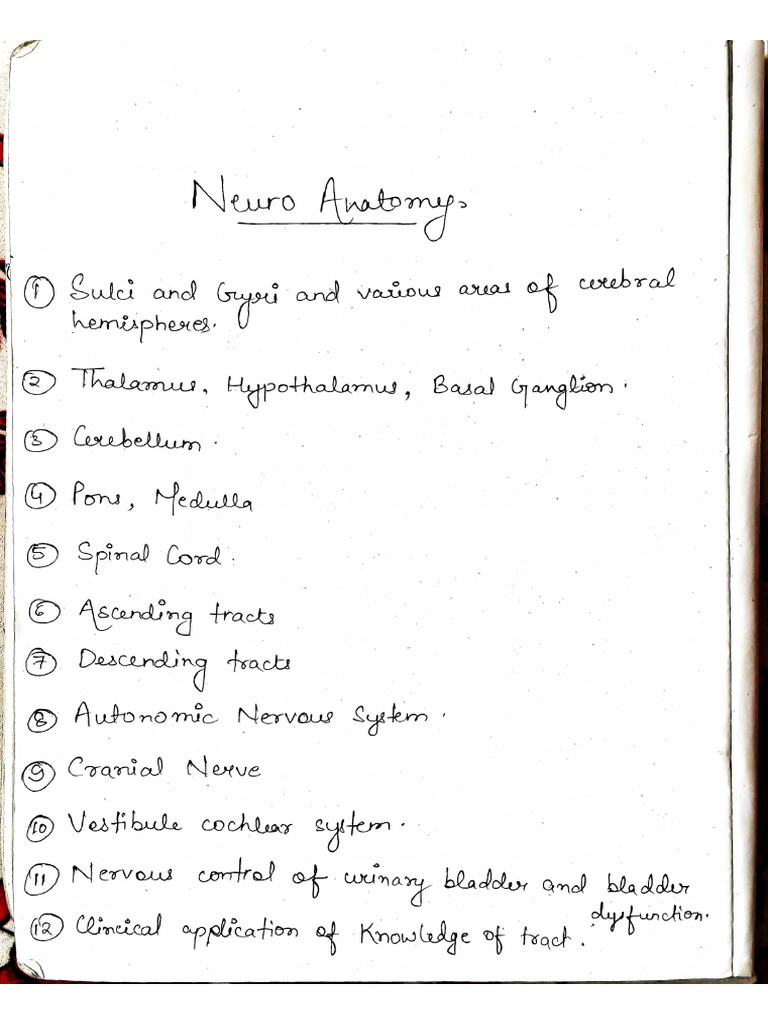 Neuro Anatomy.
① Sulci and Gyri and various areas of cerebral
hemispheres.
② Thalamus, Hypothalamus, Basal Ganglion.
③ Cerebellum.
④ Pons, Medulla
⑤ Spinal Cord.
⑥ Ascending tracts
⑦ Descending tracts
⑧ Autonomic Nervous System.
⑨ Cranial Nerve
⑩ Vestibule cochlear system.
⑪ Nervous control of urinary bladder and bladder
dysfunction.
⑫ Clincical application of Knowledge of tract.